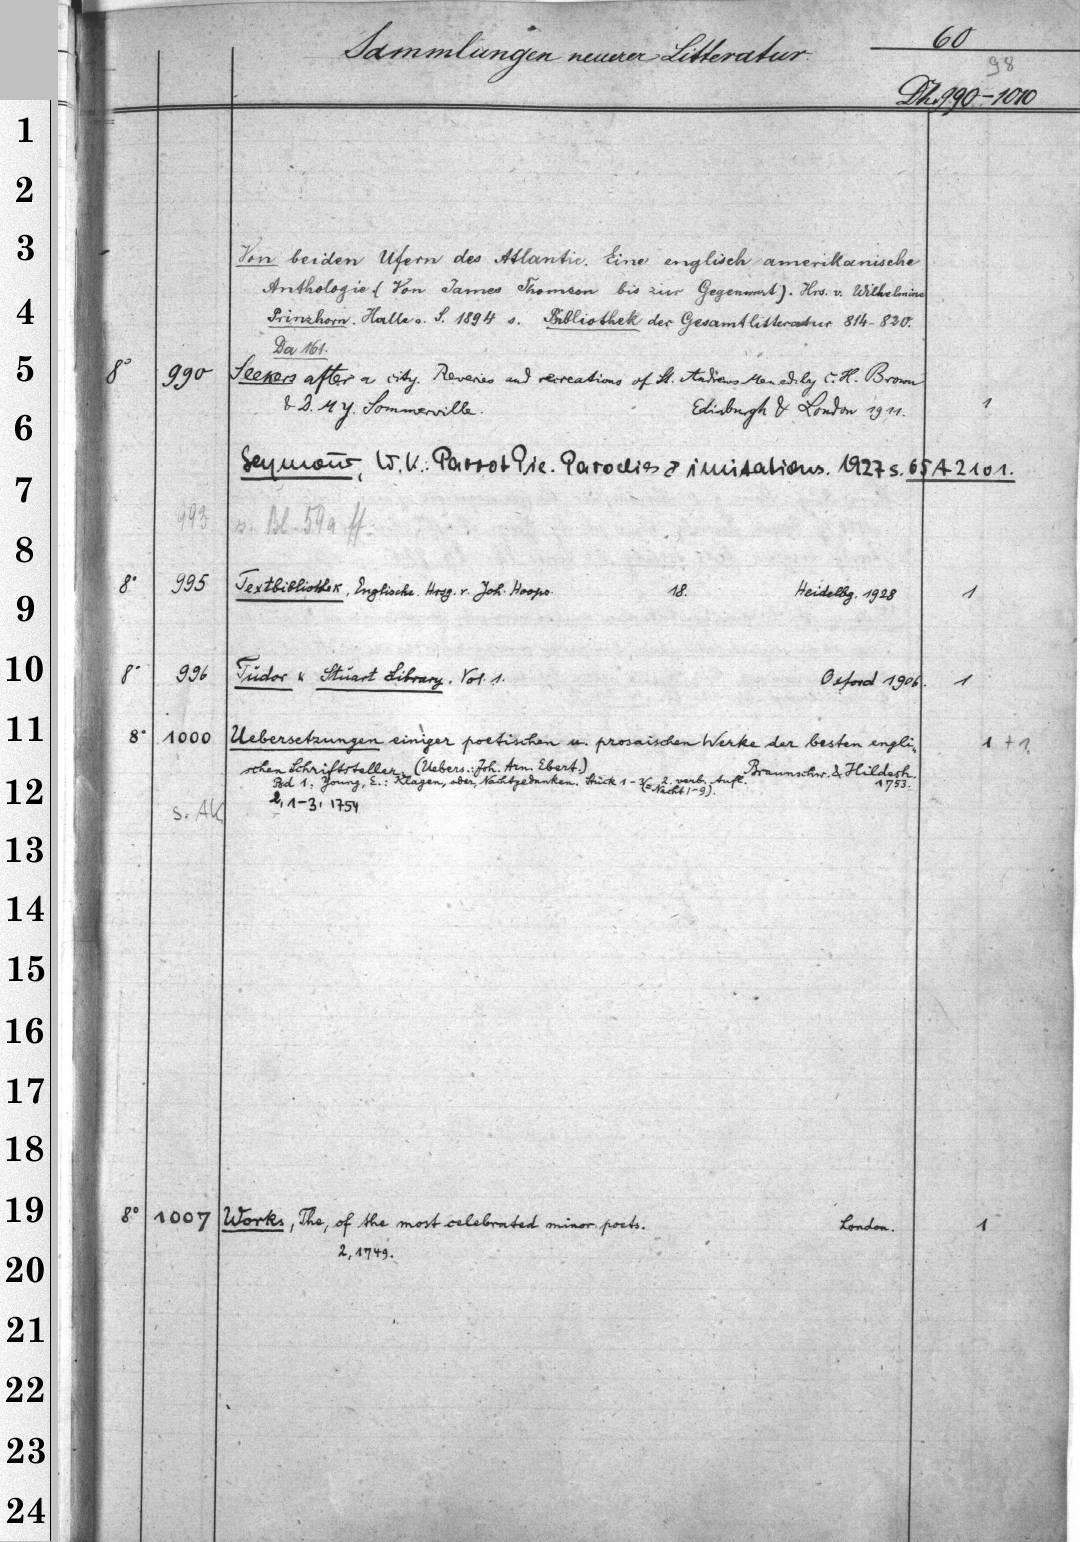 Sammlungen neuerer Litteratur.
60
98
Dh. 990-1010
1
2
3
Von beiden Ufern des Atlantic. Eine englisch amerikanische
Anthologie (Von James Thomson bis zur Gegenwart). Hrs. v. Wilhelmine
4
Prinzhorn. Halle a. S. 1894 s. Bibliothek der Gesamtlitteratur 814-820.
Da 161.
5
8° 990 Seekers after a city. Reveries and recreations of St. Andrews Men ed. by C. H. Brown
& D. M Y. Sommerville. Edinburgh & London 1911. 1
6
Seymour, W. K.: Parrot Pie. Parodies & imitations. 1927 s. 65 A 2101.
7
993 s. Bl. 59a ff.
8
8° 995 Textbibliothek, Englische. Hrsg. v. Joh. Hoops. 18. Heidelbg. 1928 1
9
10
8° 996 Tudor & Stuart Library. Vol. 1. Oxford 1906. 1
11
8° 1000 Uebersetzungen einiger poetischen u. prosaischen Werke der besten engli- 1 + 1
schen Schriftsteller. (Uebers.: Joh. Arn. Ebert.) Braunschw. & Hildesh.
Bd 1, Young, E.: Klagen, oder Nachtgedanken. Stück 1- 2. verb. Aufl. 1753.
(= Nacht 1-9).
12
2, 1-3, 1754
s. AK
13
14
15
16
17
18
19
8° 1007 Works, The, of the most celebrated minor poets. London. 1
2, 1749.
20
21
22
23
24